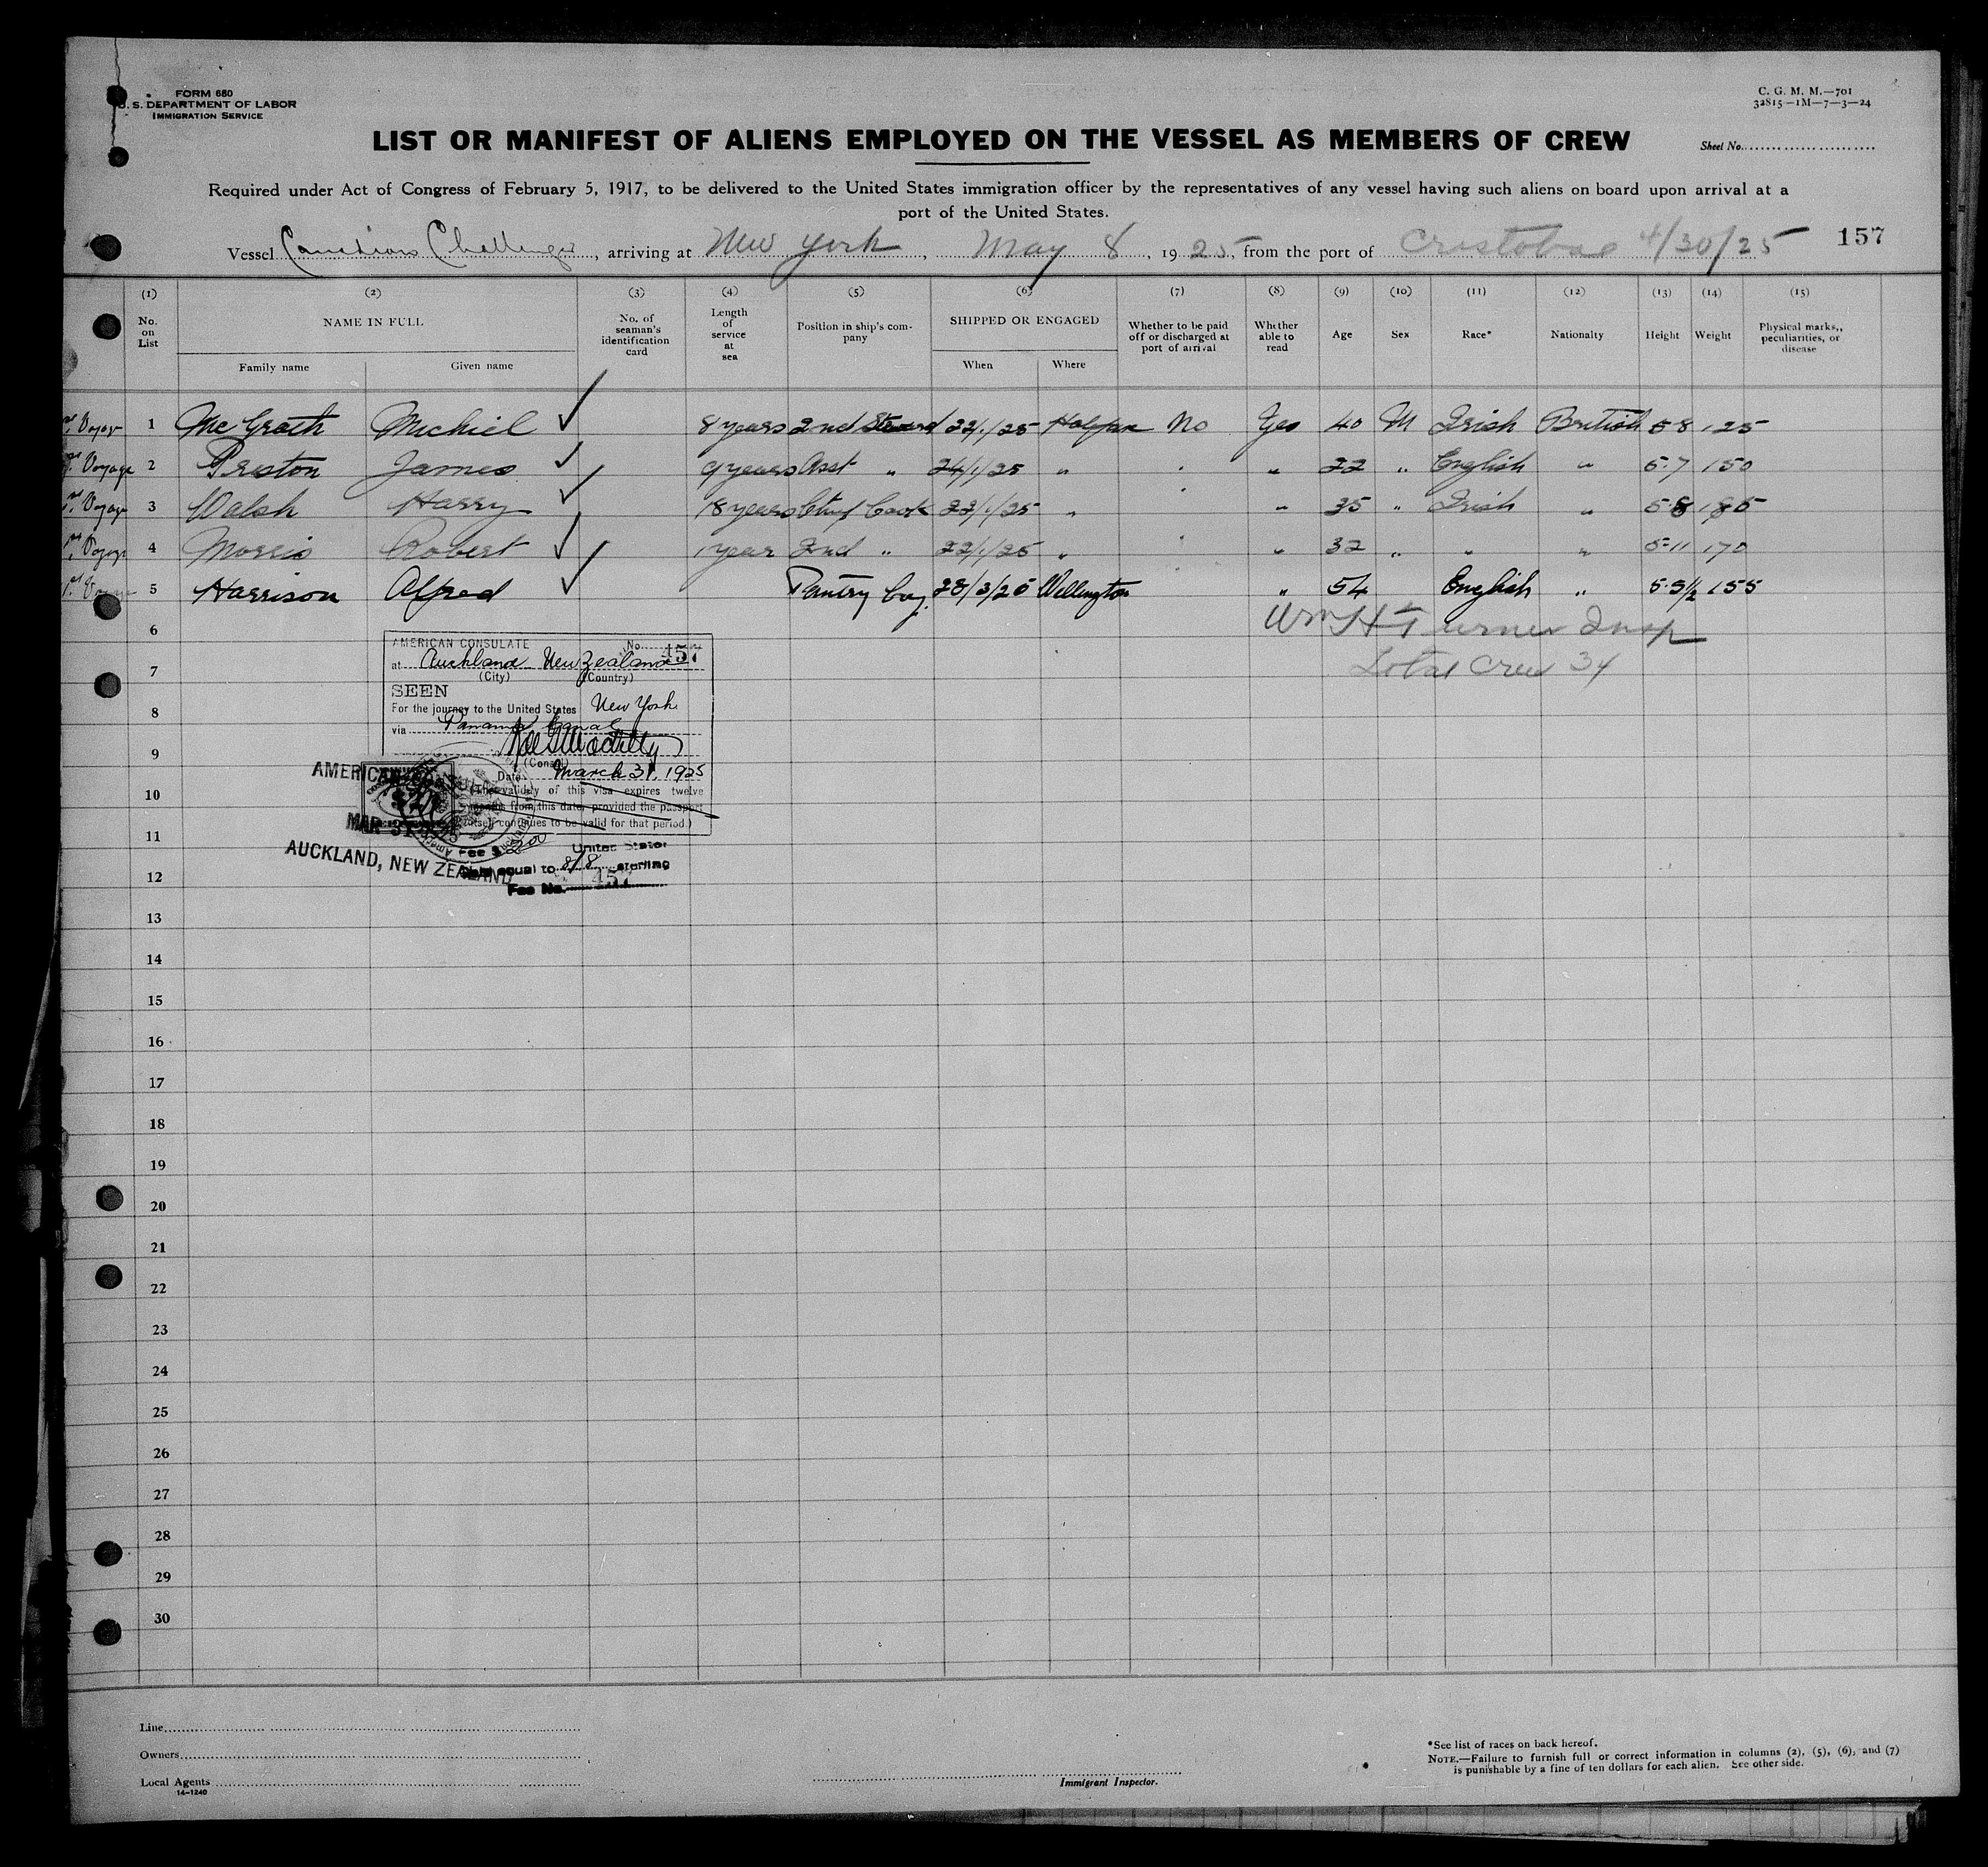 FORM 680
U. S. DEPARTMENT OF LABOR
IMMIGRATION SERVICE
C. G. M. M.—701
32815—1M—7—3—24
LIST OR MANIFEST OF ALIENS EMPLOYED ON THE VESSEL AS MEMBERS OF CREW
Sheet No.
Required under Act of Congress of February 5, 1917, to be delivered to the United States immigration officer by the representatives of any vessel having such aliens on board upon arrival at a
port of the United States.
Vessel Canadian Challenger, arriving at New York, May 8, 1925, from the port of Cristobal 4/30/25 157
(1) (2) (3) (4) (5) (6) (7) (8) (9) (10) (11) (12) (13) (14) (15)
No. on List NAME IN FULL No. of seaman's identification card Length of service at sea Position in ship's company SHIPPED OR ENGAGED Whether to be paid off or discharged at port of arrival Whether able to read Age Sex Race* Nationality Height Weight Physical marks, peculiarities, or disease
Family name Given name When Where
Voyage 1 McGrath Michiel 8 years 2nd Steward 22/1/25 Halifax No Yes 40 M Irish British 5-8 125
Voyage 2 Preston James 9 years Asst " 24/1/25 " " 22 " English " 5-7 150
Voyage 3 Walsh Harry 18 years Chief Cook 22/1/25 " " 35 " Irish " 5-8 185
Voyage 4 Morris Robert 1 year 2nd " 22/1/25 " " 32 " " " 5-11 170
5 Harrison Alfred Pantry boy 28/3/25 Wellington " 54 English " 5-5½ 155
6 Wm H Turner Insp
7 Total Crew 34
8
9
10
11
12
13
14
15
16
17
18
19
20
21
22
23
24
25
26
27
28
29
30
AMERICAN CONSULATE No. 457
at Auckland New Zealand
(City) (Country)
SEEN
For the journey to the United States New York
via Panama Canal
(Consul)
Date March 31, 1925
(The validity of this visa expires twelve
months from this date, provided the passport
itself continues to be valid for that period.)
AMERICAN
MAR 31 1925
AUCKLAND, NEW ZEALAND
Fee $ 200 United States
equal to 8/8 sterling
Fee No. 457
Line
Owners
Local Agents
14-1240
Immigrant Inspector.
*See list of races on back hereof.
NOTE.—Failure to furnish full or correct information in columns (2), (5), (6), and (7)
is punishable by a fine of ten dollars for each alien. See other side.